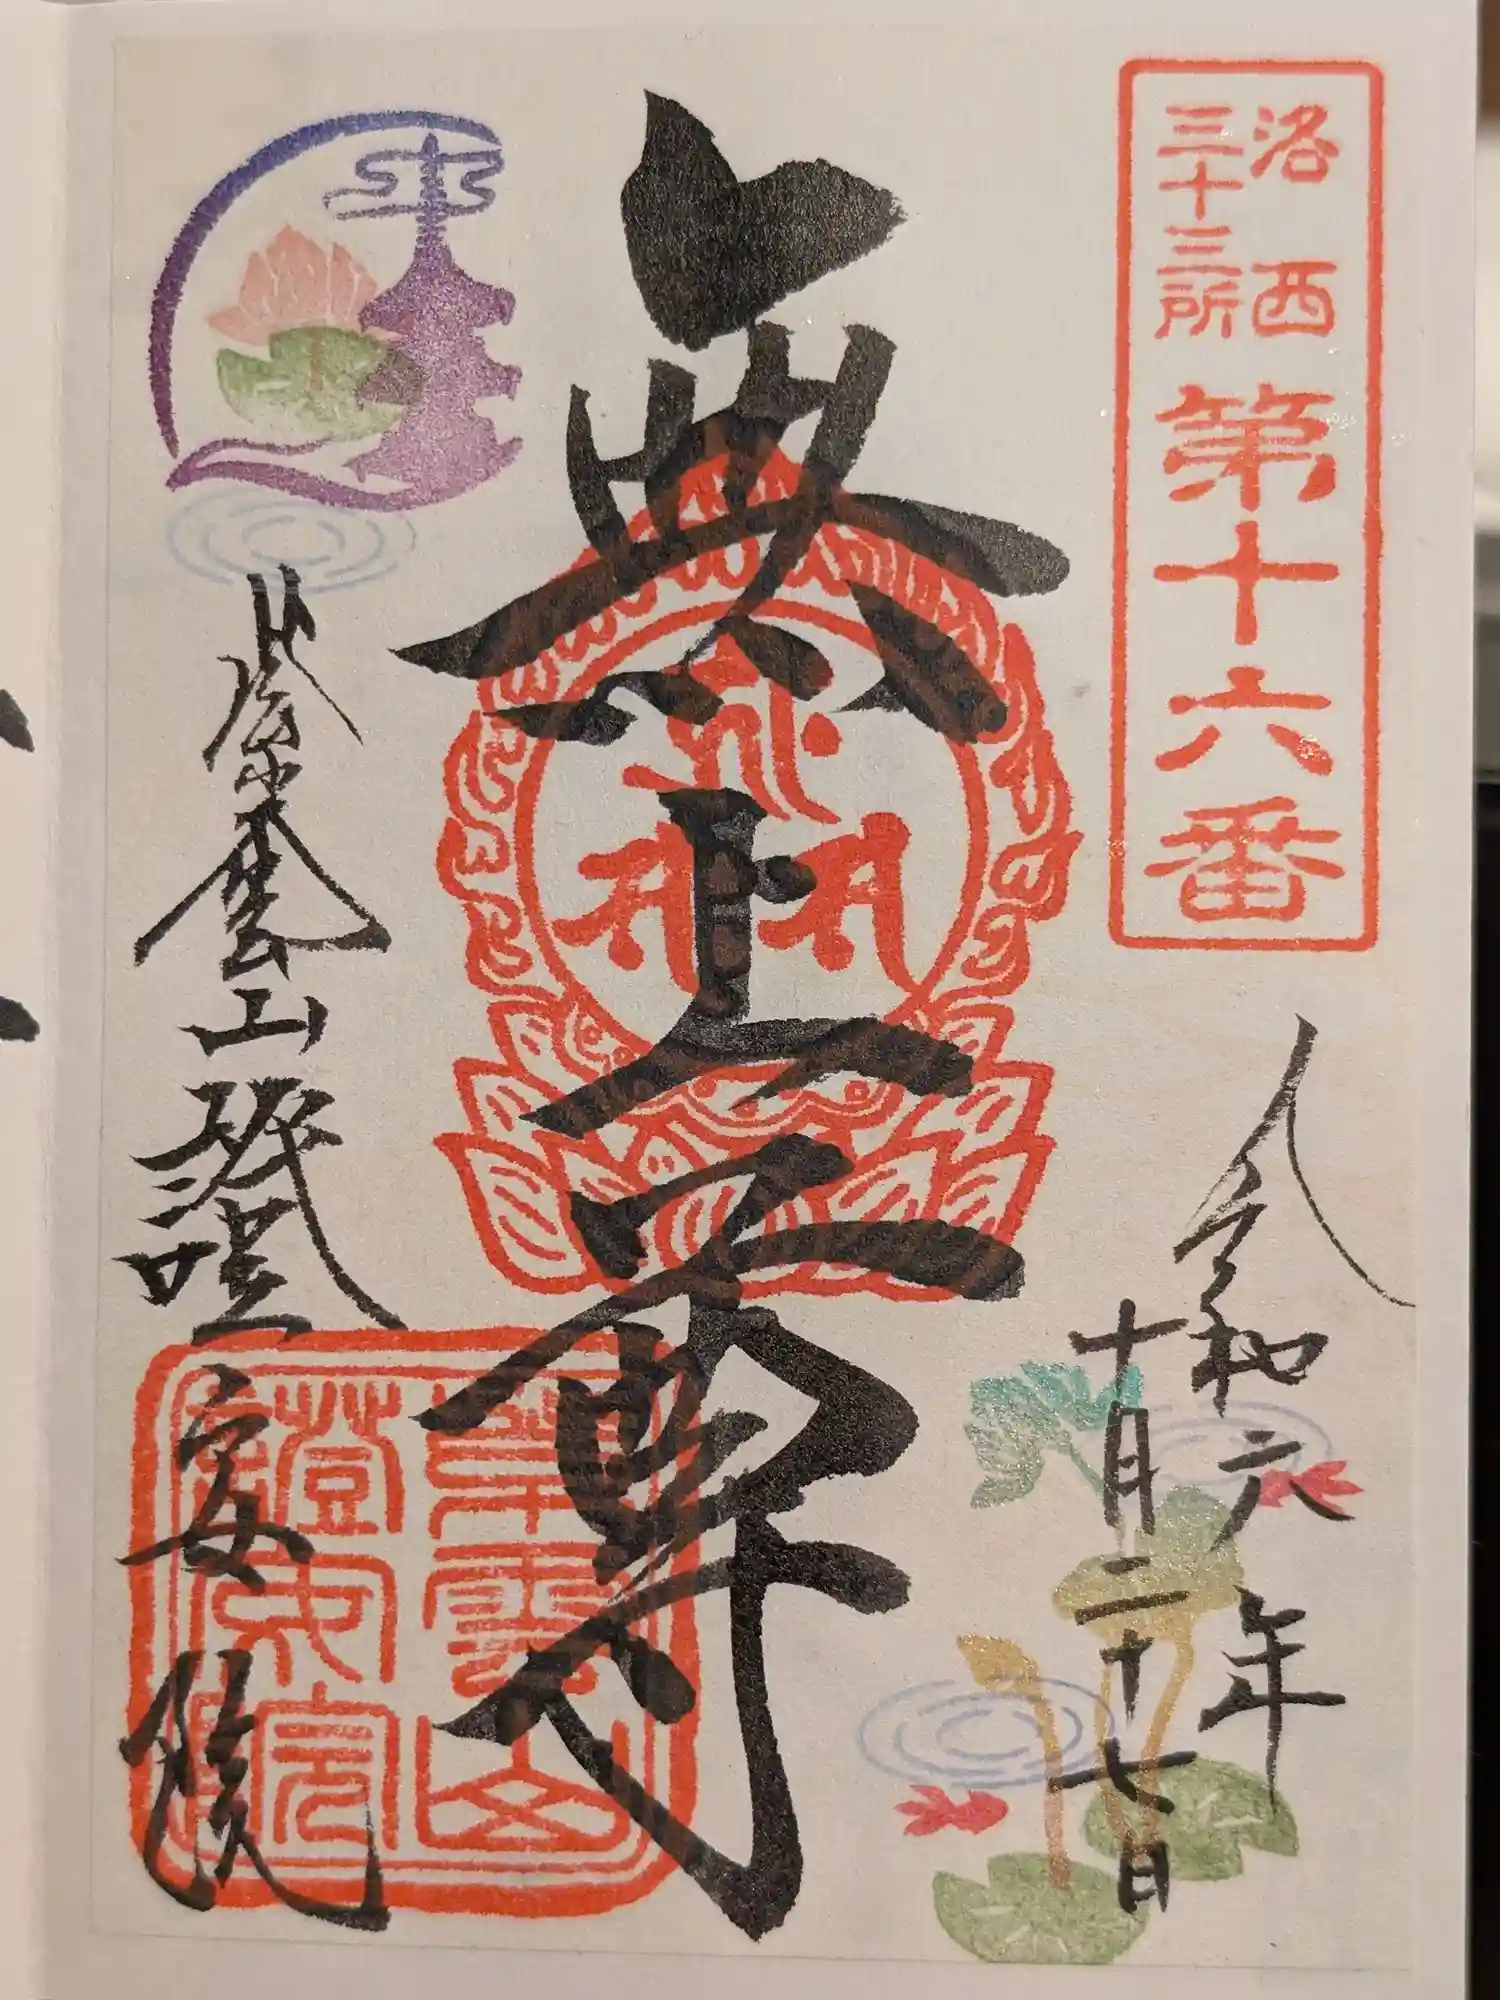 洛西
三十三所
第十六番
令和六年
十月二十七日
無上尊
紫雲山證安院
雲山
證安院